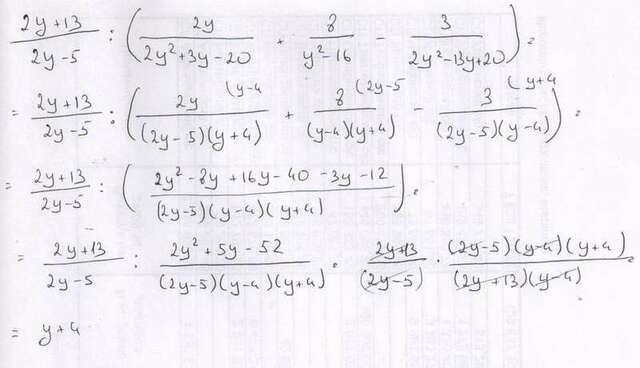 (2y+13)/(2y-5) : ( 2y/(2y²+3y-20) + 8/(y²-16) - 3/(2y²-13y+20) ) =
= (2y+13)/(2y-5) : ( 2y/((2y-5)(y+4)) (y-4 + 8/((y-4)(y+4)) (2y-5 - 3/((2y-5)(y-4)) (y+4 ) =
= (2y+13)/(2y-5) : ( (2y²-8y+16y-40-3y-12)/((2y-5)(y-4)(y+4)) ) =
= (2y+13)/(2y-5) : (2y²+5y-52)/((2y-5)(y-4)(y+4)) = (2y+13)/(2y-5) · ((2y-5)(y-4)(y+4))/((2y+13)(y-4)) =
= y+4